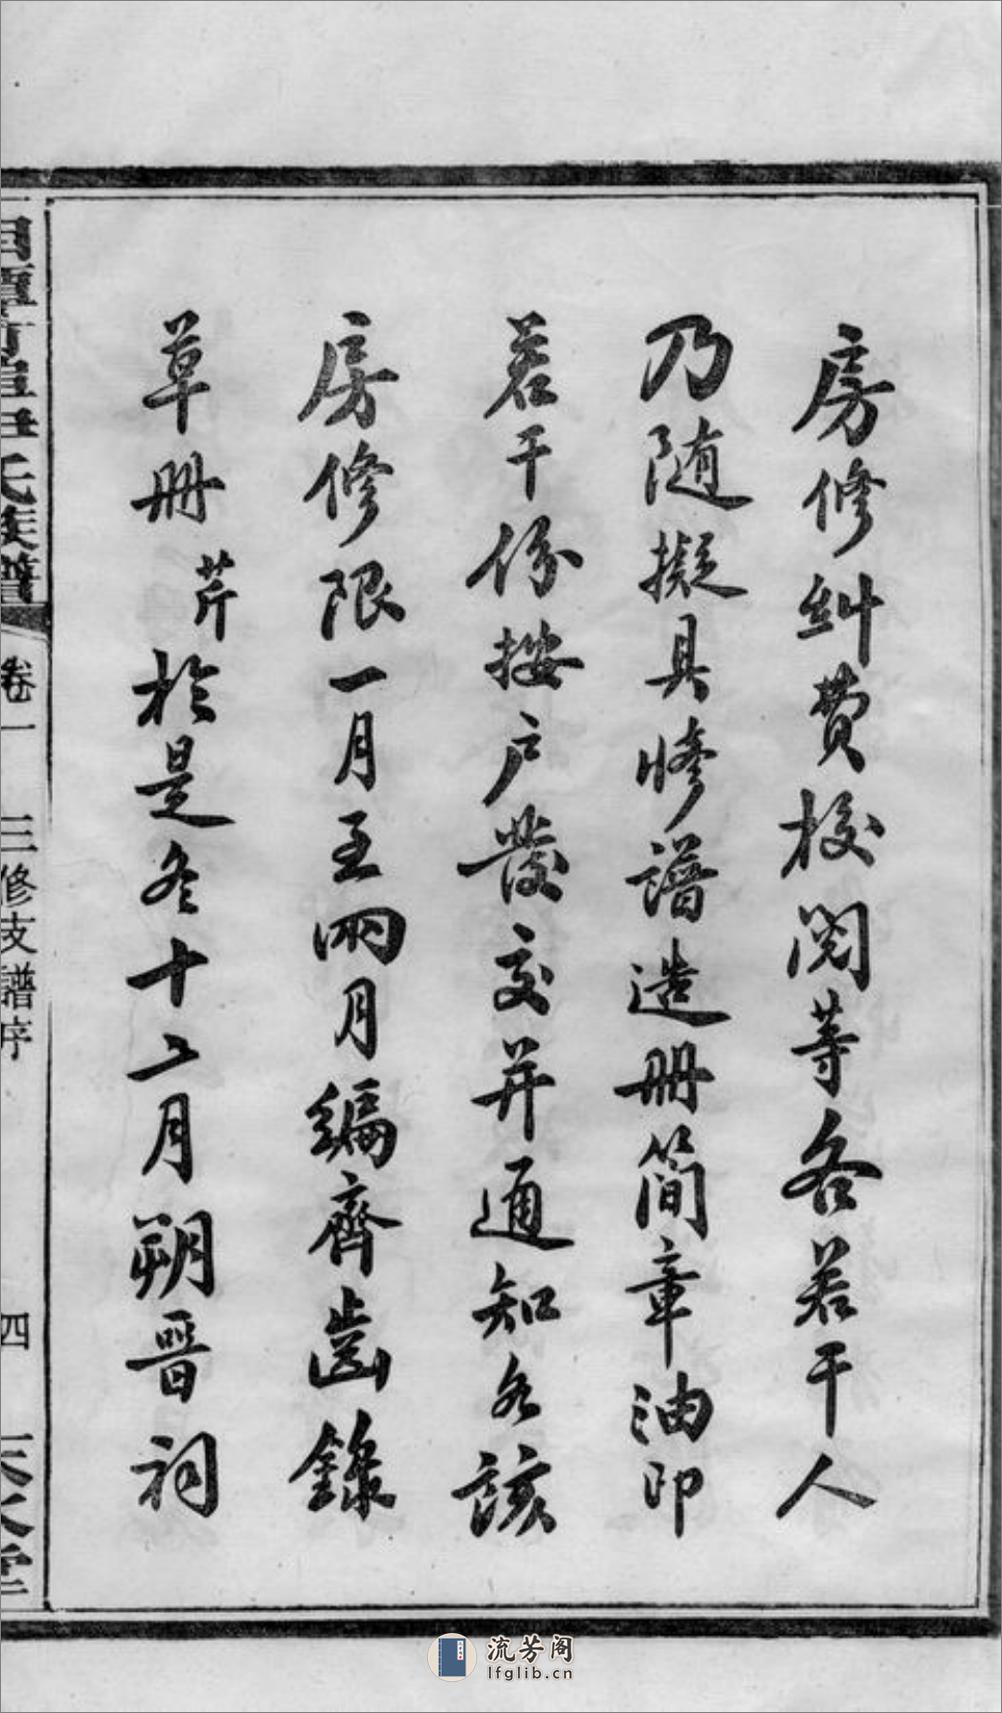 房修糾費校閱等各若干人
乃随擬具修譜造册简章油印
若干份按户發交并通知各該
房修限一月至兩月編齊齒錄
草册芹於是冬十二月朔晋祠
氏族譜
卷一
三修支譜序
四
流芳阁
lfglib.cn